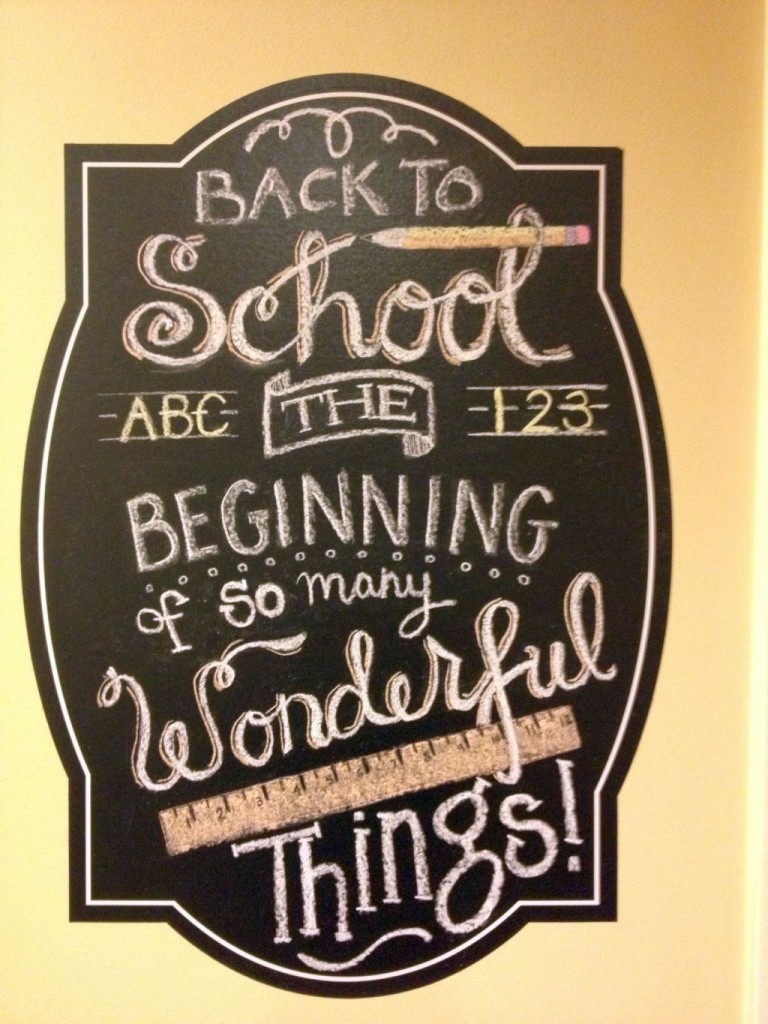 BACK TO
School
ABC THE 123
BEGINNING
of so many
Wonderful
Things!